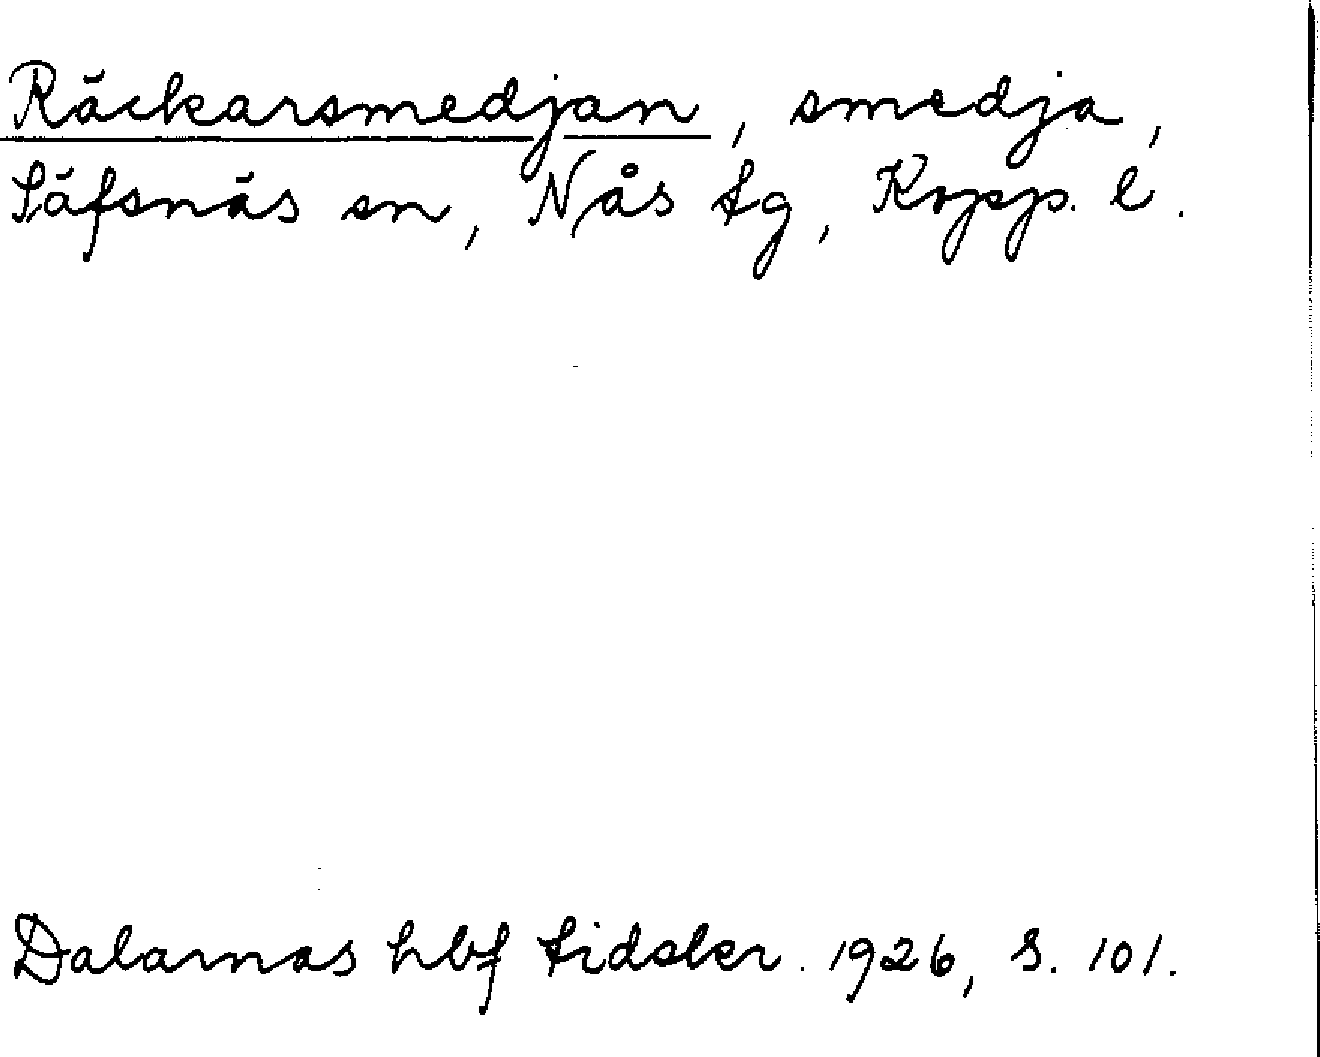 Räckarsmedjan, smedja,
Säfsnäs sn, Nås tg, Kopp. l.
Dalarnas hbf tidskr. 1926, s. 101.